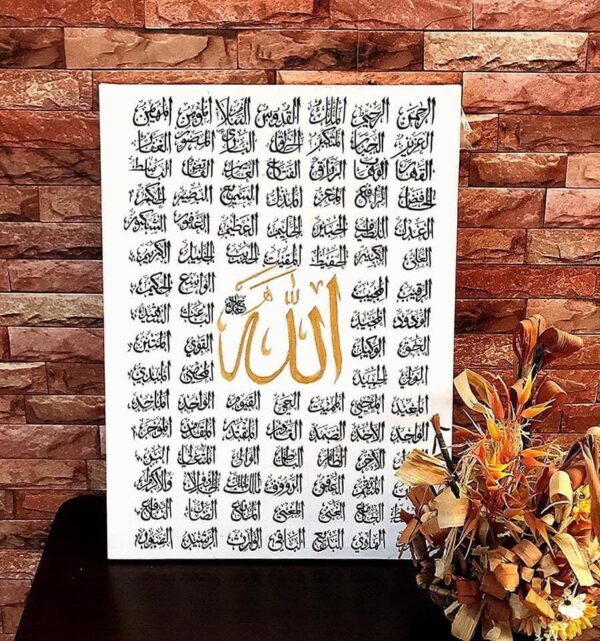 الرحمن الرحيم الملك القدوس السلام المؤمن المهيمن
العزيز الجبار المتكبر الخالق البارئ المصور الغفار
القهار الوهاب الرزاق الفتاح العليم القابض الباسط
الخافض الرافع المعز المذل السميع البصير الحكم
العدل اللطيف الخبير الحليم العظيم الغفور الشكور
العلي الكبير الحفيظ المقيت الحسيب الجليل الكريم
الرقيب المجيب الواسع الحكيم
الودود المجيد الباعث الشهيد
الله
الحق الوكيل القوي المتين
الولي الحميد المحصي المبدئ
المعيد المحيي المميت الحي القيوم الواجد الماجد
الواحد الاحد الصمد القادر المقتدر المقدم المؤخر
الآخر الظاهر الباطن الوالي المتعالي البر
المنتقم العفو الرؤوف مالك الملك ذو الجلال والإكرام
الجامع الغني المغني المانع الضار النافع
الهادي البديع الباقي الوارث الرشيد الصبور